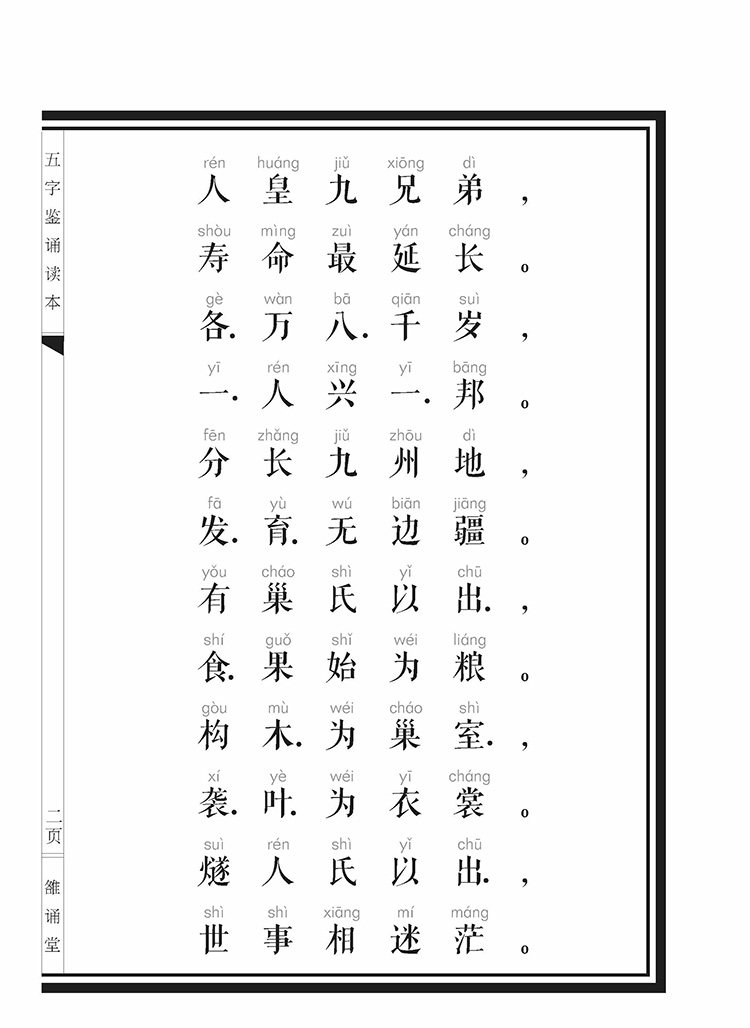 五字鉴诵读本
rén huáng jiǔ xiōng dì
人皇九兄弟，
shòu mìng zuì yán cháng
寿命最延长。
gè wàn bā qiān suì
各.万八.千岁，
yī rén xīng yī bāng
一.人兴一.邦。
fēn zhǎng jiǔ zhōu dì
分长九州地，
fā yù wú biān jiāng
发.育.无边疆。
yǒu cháo shì yǐ chū
有巢氏以出.，
shí guǒ shǐ wéi liáng
食.果始为粮。
gòu mù wéi cháo shì
构木.为巢室.，
xí yè wéi yī cháng
袭.叶.为衣裳。
suì rén shì yǐ chū
燧人氏以出.，
shì shì xiāng mí máng
世事相迷茫。
二页
雏诵堂